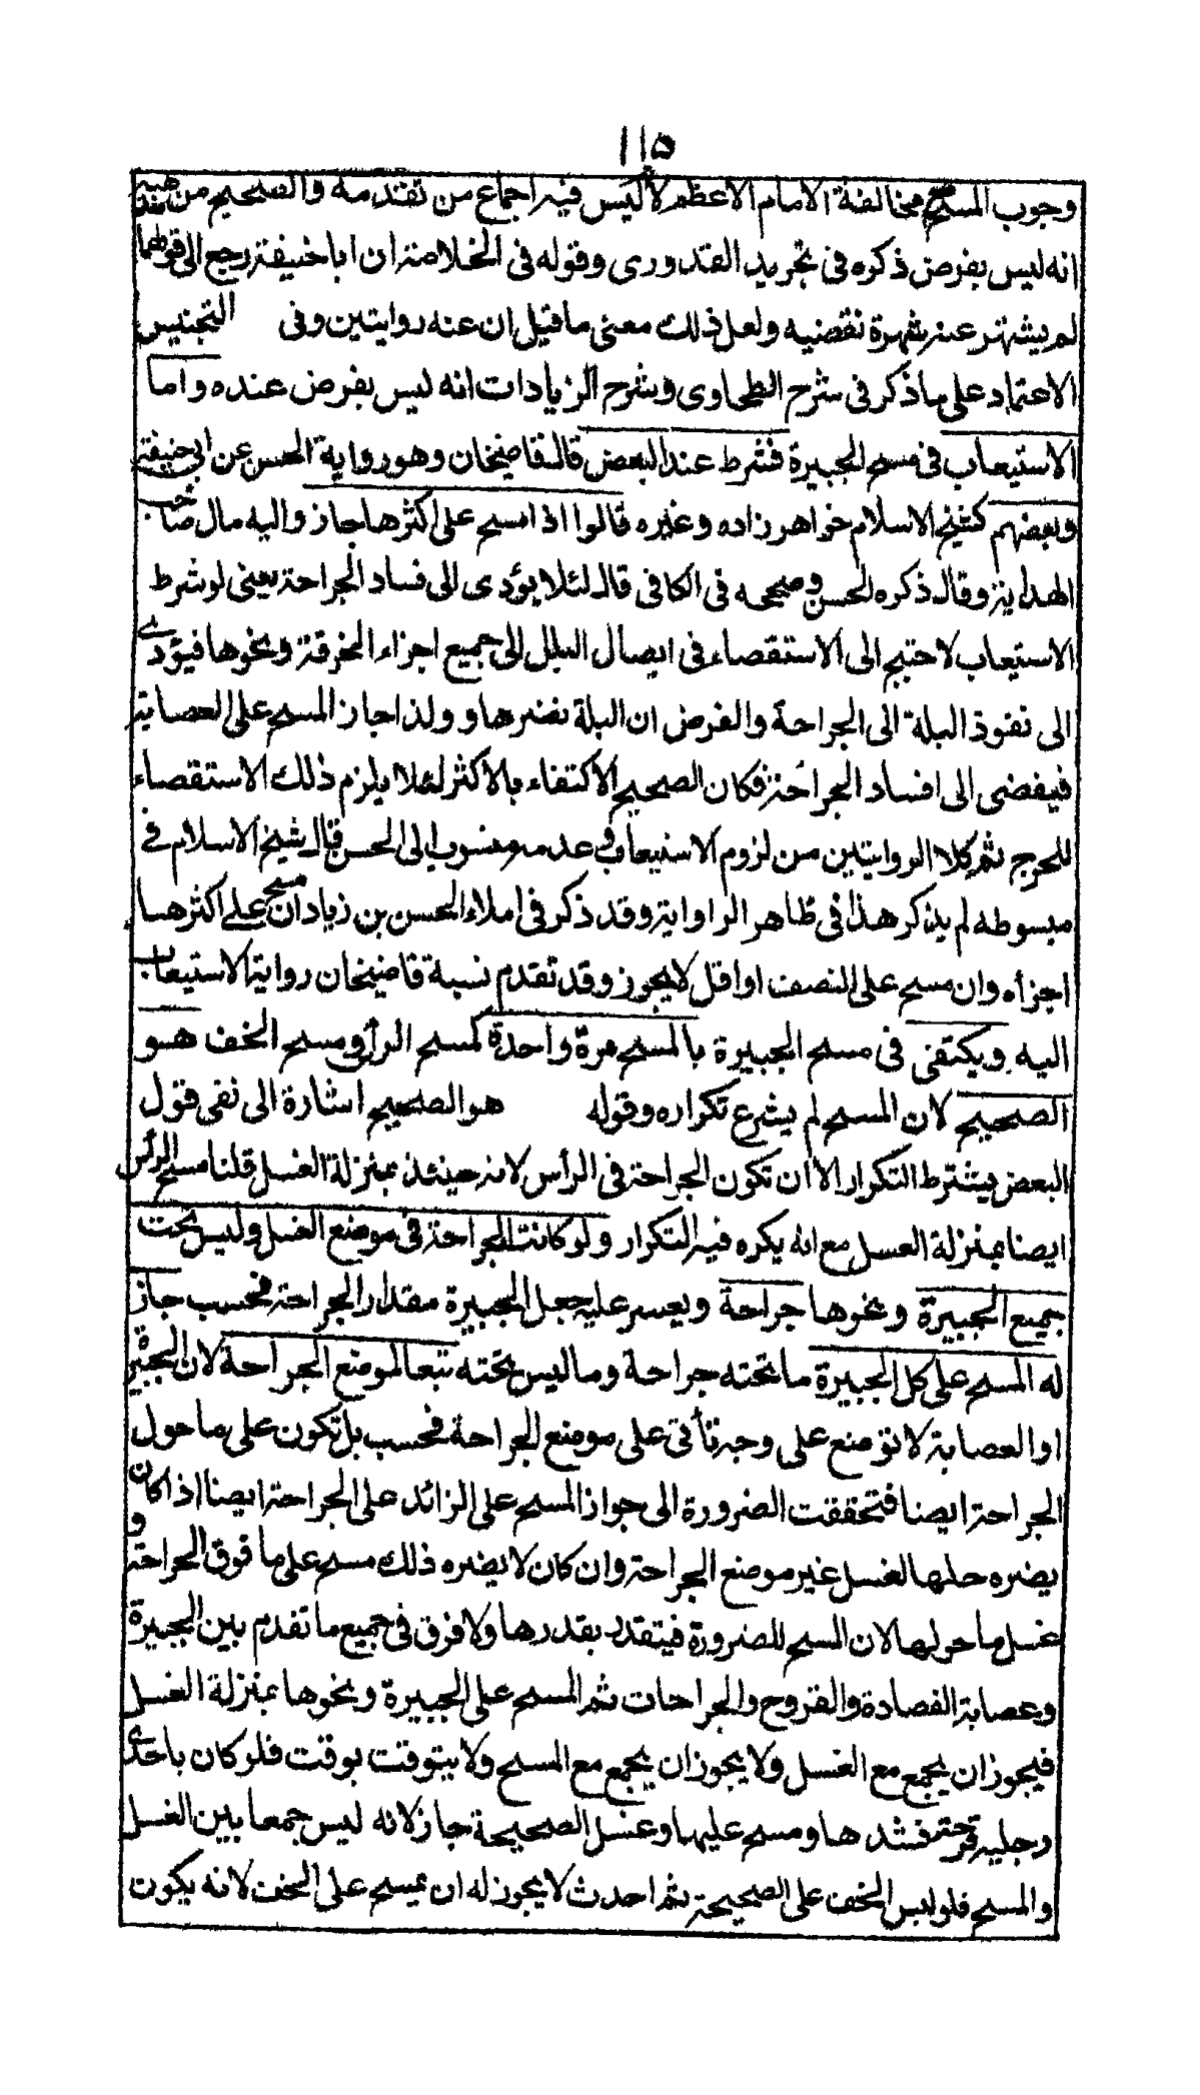 ١١٥
وجوب المسح مخالفة الامام الاعظم لا ليس فيه اجماع من تقدمه والصحيح من مذهبه
انه ليس بفرض ذكره فى تجريد القدورى وقوله فى الخلاصة ان ابا حنيفة رجع الى قولهما
لم يشتهر عنه شهرة نقضيه ولعل ذلك معنى ما قيل ان عنه روايتين وفى التجنيس
الاعتماد على ما ذكر فى شرح الطحاوى وشرح الزيادات انه ليس بفرض عنده واما
الاستيعاب فى مسح الجبيرة فشرط عند البعض قال قاضيخان وهو رواية الحسن عن ابى حنيفة
وبعضهم كشيخ الاسلام خواهر زاده وغيره قالوا اذا مسح على اكثرها جاز واليه مال صاحب
الهداية وقال ذكره الحسن وصححه فى الكافى قال لئلا يؤدى الى فساد الجراحة يعنى لو شرط
الاستيعاب لاحتيج الى الاستقصاء فى ايصال البلل الى جميع اجزاء الخرقة ونحوها فيؤدى
الى نفوذ البلة الى الجراحة والفرض ان البلة تضرها و ولذا جاز المسح على العصابة
فيفضى الى افساد الجراحة فكان الصحيح الاكتفاء بالاكثر لئلا يلزم ذلك الاستقصاء
للحرج ثم كلا الروايتين من لزوم الاستيعاب وعدمه منسوب الى الحسن قال شيخ الاسلام فى
مبسوطه لم يذكر هذا فى ظاهر الراواية وقد ذكر فى املاء الحسن بن زياد ان مسح على اكثرها
اجزأه وان مسح على النصف او اقل لا يجوز وقد تقدم نسبة قاضيخان رواية الاستيعاب
اليه ويكتفى فى مسح الجبيرة بالمسح مرة واحدة كمسح الرأس ومسح الخف هو
الصحيح لان المسح لم يشرع تكراره وقوله هو الصحيح اشارة الى نفى قول
البعض يشترط التكرار الا ان تكون الجراحة فى الرأس لانه حينئذ بمنزلة الغسل قلنا مسح الرأس
ايضا بمنزلة الغسل مع انه يكره فيه التكرار ولو كانت الجراحة فى موضع الغسل وليس تحت
جميع الجبيرة ونحوها جراحة ويعسر عليه جعل الجبيرة مقدار الجراحة فحسب جاز
له المسح على كل الجبيرة ما تحته جراحة وما ليس تحته تبعا لموضع الجراحة لان الجبيرة
او العصابة لا توضع على وجه تأتى على موضع الجراحة فحسب بل تكون على ما حول
الجراحة ايضا فتحققت الضرورة الى جواز المسح على الزائد على الجراحة ايضا اذا كان
يضره حلها لغسل غير موضع الجراحة وان كان لا يضره ذلك مسح على ما فوق الجراحة و
غسل ما حولها لان المسح للضرورة فيتقدر بقدرها ولا فرق فى جميع ما تقدم بين الجبيرة
وعصابة الفصادة والقروح والجراحات ثم المسح على الجبيرة ونحوها بمنزلة الغسل
فيجوز ان يجمع مع الغسل ولا يجوز ان يجمع مع المسح ولا يتوقت بوقت فلو كان باحدى
رجليه قرحة فشدها ومسح عليها وغسل الصحيحة جاز لانه ليس جمعا بين الغسل
والمسح فلو لبس الخف على الصحيحة ثم احدث لا يجوز له ان يمسح على الخف لانه يكون